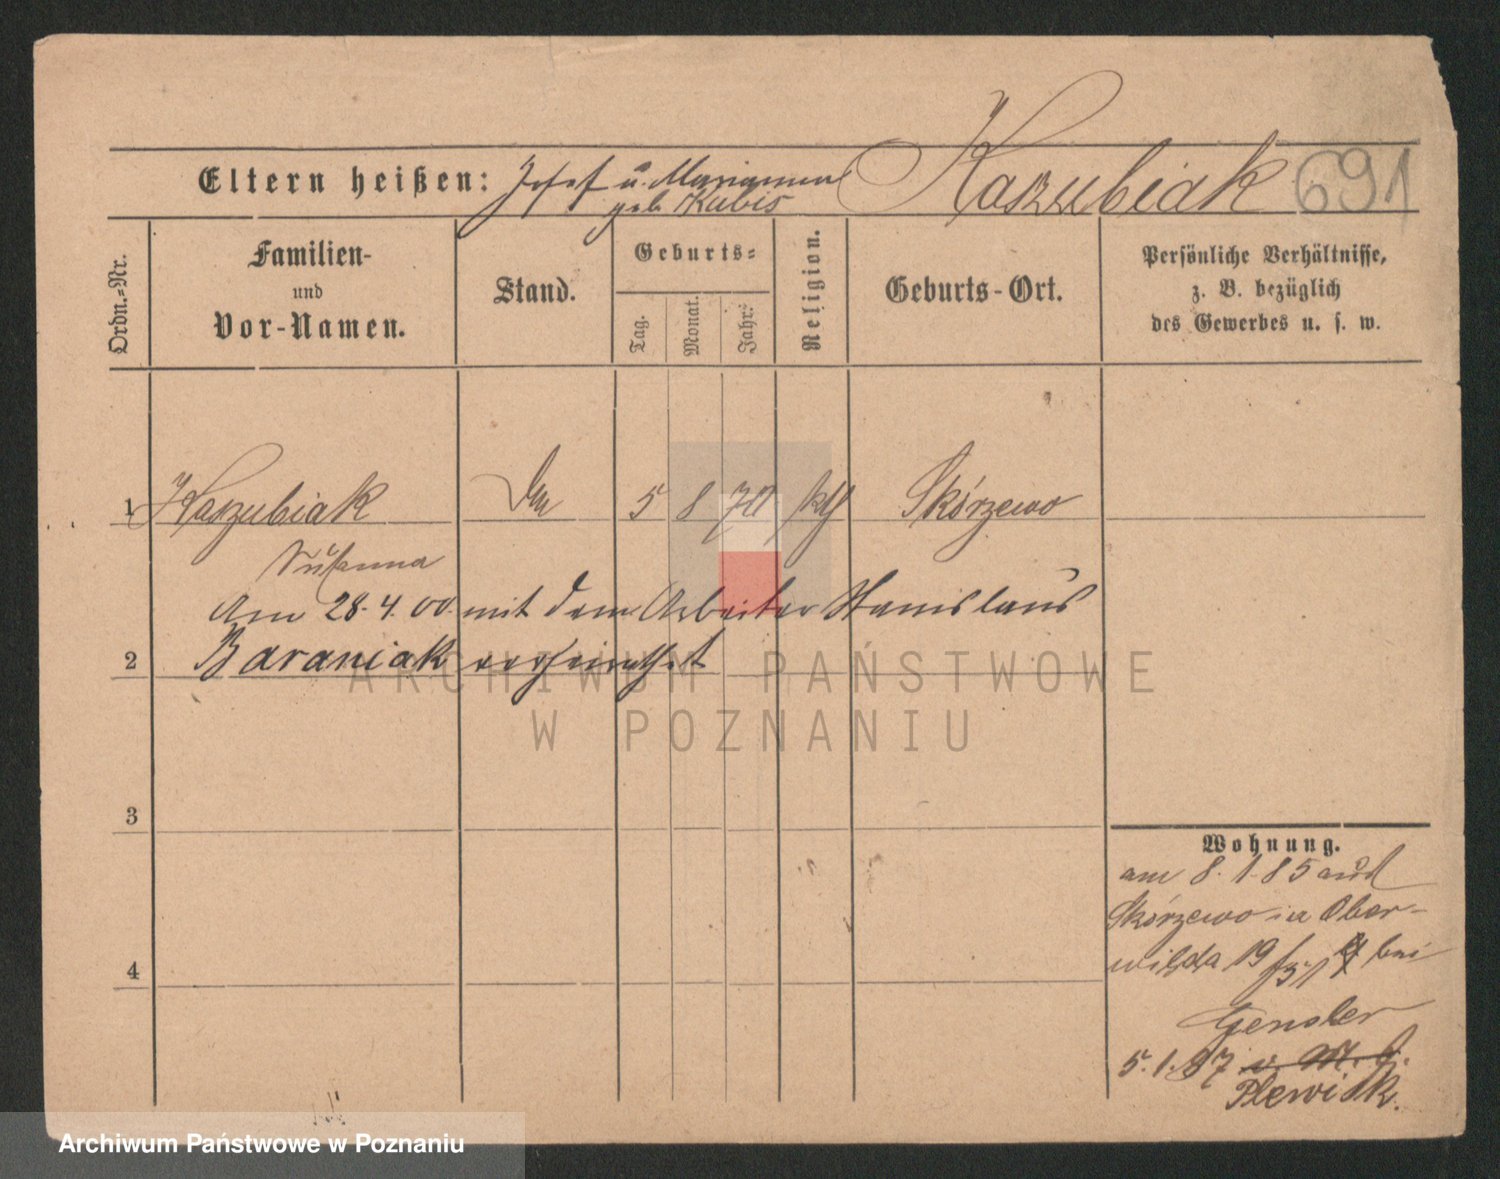 Eltern heißen: Josef u. Marianna Kaszubiak 691
geb. Kubis
Ordn.-Nr.
Familien-
und
Vor-Namen.
Stand.
Geburts-
Tag.
Monat.
Jahr:
Religion.
Geburts-Ort.
Persönliche Verhältnisse,
z. B. bezüglich
des Gewerbes u. s. w.
1 Kaszubiak 5 8 70 kth Skórzewo
Susanna
Am 28.4.00. mit dem Arbeiter Stanislaus
2 Baraniak verheirathet
ARCHIWUM PAŃSTWOWE
W POZNANIU
3
4
Wohnung.
am 8.1.85 aus
Skórzewo in Ober-
wilda 19 bei
Gensler
5.1.87
Plewiak.
Archiwum Państwowe w Poznaniu